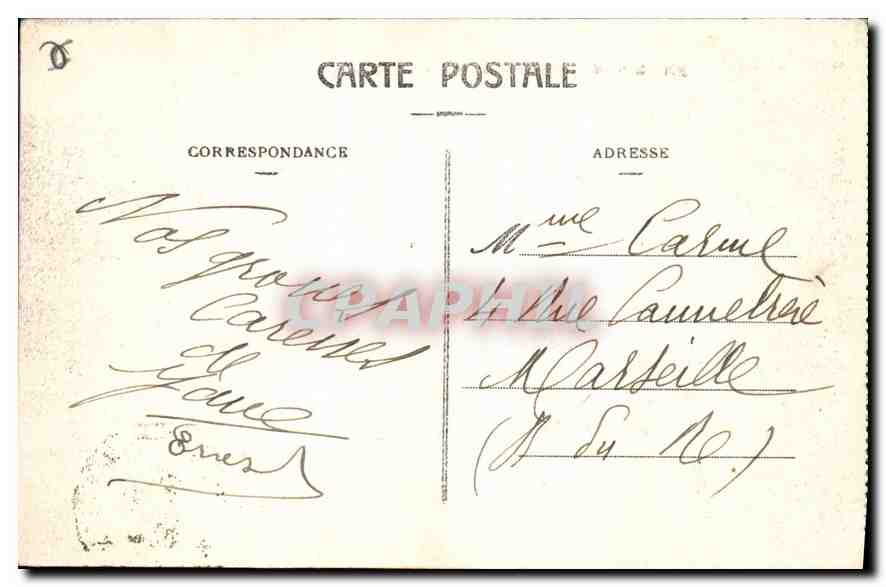 CARTE POSTALE
CORRESPONDANCE
Nos grosses
Caresses
de
Ernest
ADRESSE
Mme Carme
4 Rue Cannebière
Marseille
(B du R.)
CPAPHIL